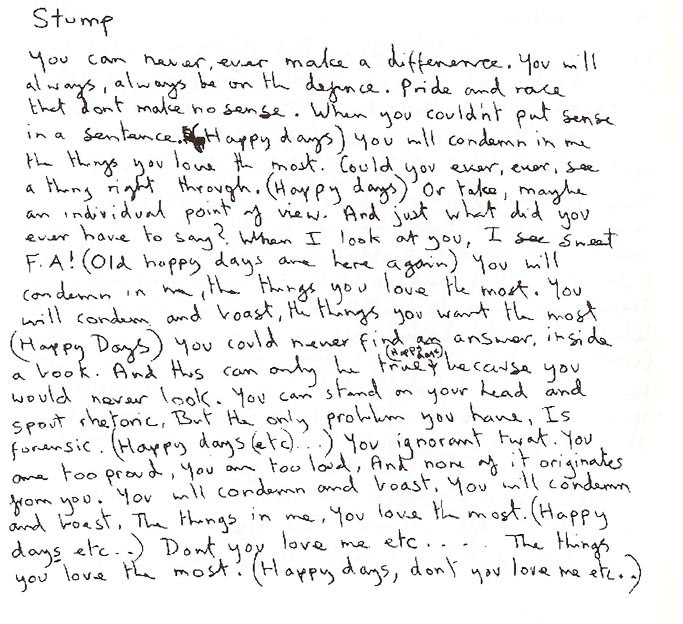 Stump
You can never, ever make a difference. You will
always, always be on the defence. Pride and race
that dont make no sense. When you couldn't put sense
in a sentence. (Happy days) You will condemn in me
the things you love the most. Could you ever, ever, see
a thing right through. (Happy days) Or take, maybe
an individual point of view. And just what did you
ever have to say? When I look at you, I see sweet
F.A! (Old happy days are here again) You will
condemn in me, the things you love the most. You
will condem and boast, the things you want the most
(Happy Days) You could never find an answer, inside
a book. And this can only be true (Happy days) because you
would never look. You can stand on your head and
spout rhetoric, But the only problem you have, Is
forensic. (Happy days (etc)...) You ignorant twat. You
are too proud, You are too loud, And none of it originates
from you. You will condemn and boast. You will condemn
and boast, The things in me, You love the most. (Happy
days etc..) Dont you love me etc..... The things
you love the most. (Happy days, don't you love me etc..)